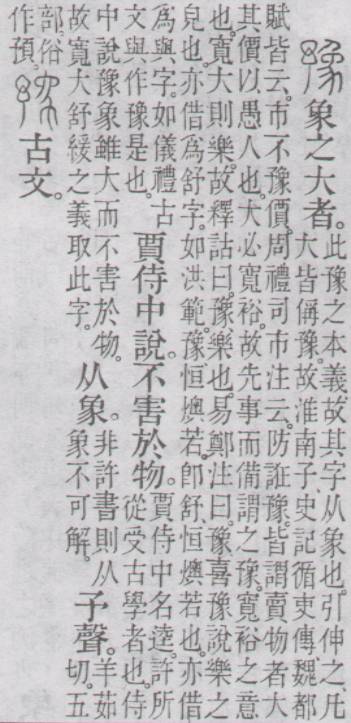 豫 象之大者。此豫之本義故其字从象也。引伸之凡
大皆偁豫。故淮南子、史記循吏傳、魏都
賦皆云。市不豫價。周禮司市注云。防誑豫。皆謂賣物者大
其價以愚人也。大必寬裕。故先事而備謂之豫。寬裕之意
也。寬大則樂。故釋詁曰。豫、樂也。易鄭注曰。豫、喜豫說樂之
皃也。亦借爲舒字。如洪範。豫、恒燠若。卽舒、恒燠若也。亦借
爲與字。如儀禮古
文與作豫是也。
賈侍中說。不害於物。
賈侍中名逵。許所
從受古學者也。侍
中說豫象雖大而不害於物。
故寬大舒緩之義取此字。
从象。
非許書則从
象不可解。
予聲。
羊茹
切。五
部。俗
作預。
古文。